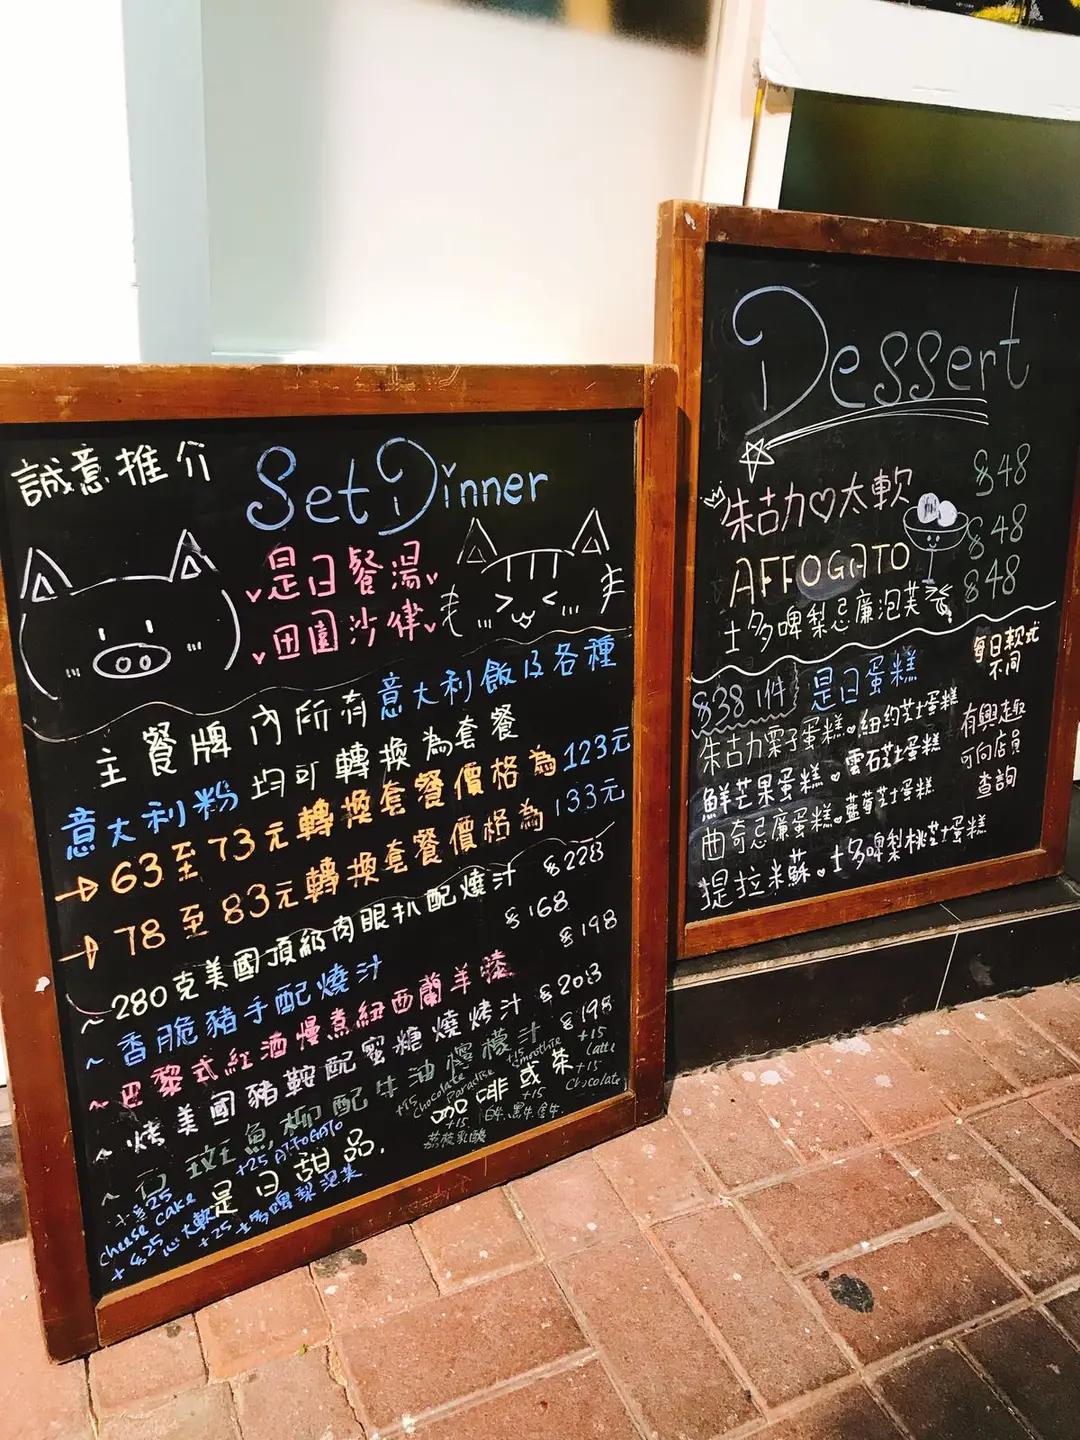 誠意推介
Set Dinner
是日餐湯
田園沙律
主餐牌內所有意大利飯及各種
意大利粉均可轉換為套餐
63至73元轉換套餐價格為123元
78至83元轉換套餐價格為133元
~280克美國頂級肉眼扒配燒汁 $228
~香脆豬手配燒汁 $168
~巴黎式紅酒慢煮紐西蘭羊膝 $198
~烤美國豬鞍配蜜糖燒烤汁 $208
~石斑魚柳配牛油檸檬汁 $198
是日甜品.
咖啡或茶
+$25
cheese cake
+25 AFFOGATO
+$25 心太軟
+25 士多啤梨泡芙
+15
Chocolate
Paradise
+15
Smoothie
+15
Latte
+15
Chocolate
+15
荔枝乳酸
+15
Dessert
朱古力♡太軟 $48
AFFOGATO $48
士多啤梨忌廉泡芙 $48
$38 1件 是日蛋糕
朱古力栗子蛋糕.紐約芝士蛋糕
鮮芒果蛋糕.雲石芝士蛋糕
曲奇忌廉蛋糕.藍莓芝士蛋糕
提拉米蘇.士多啤梨桃芝士蛋糕
每日款式
不同
有興趣
可向店員
查詢